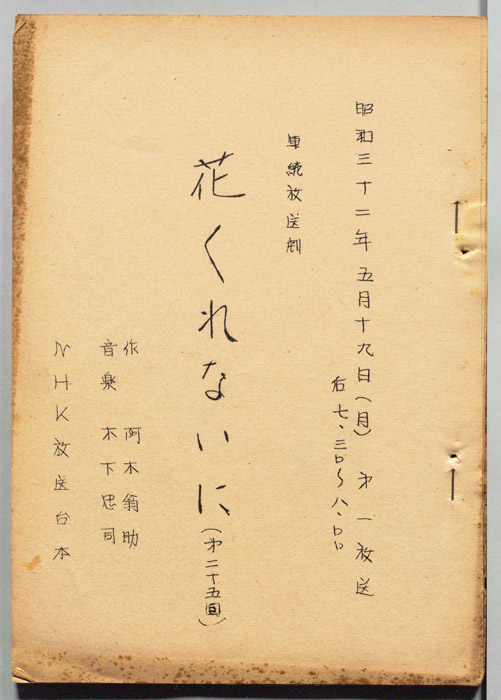 昭和三十二年五月十九日(月)第一放送
后七.三〇〜八.〇〇
連続放送劇
花くれないに(第二十五回)
作 阿木翁助
音楽 木下忠司
NHK放送台本